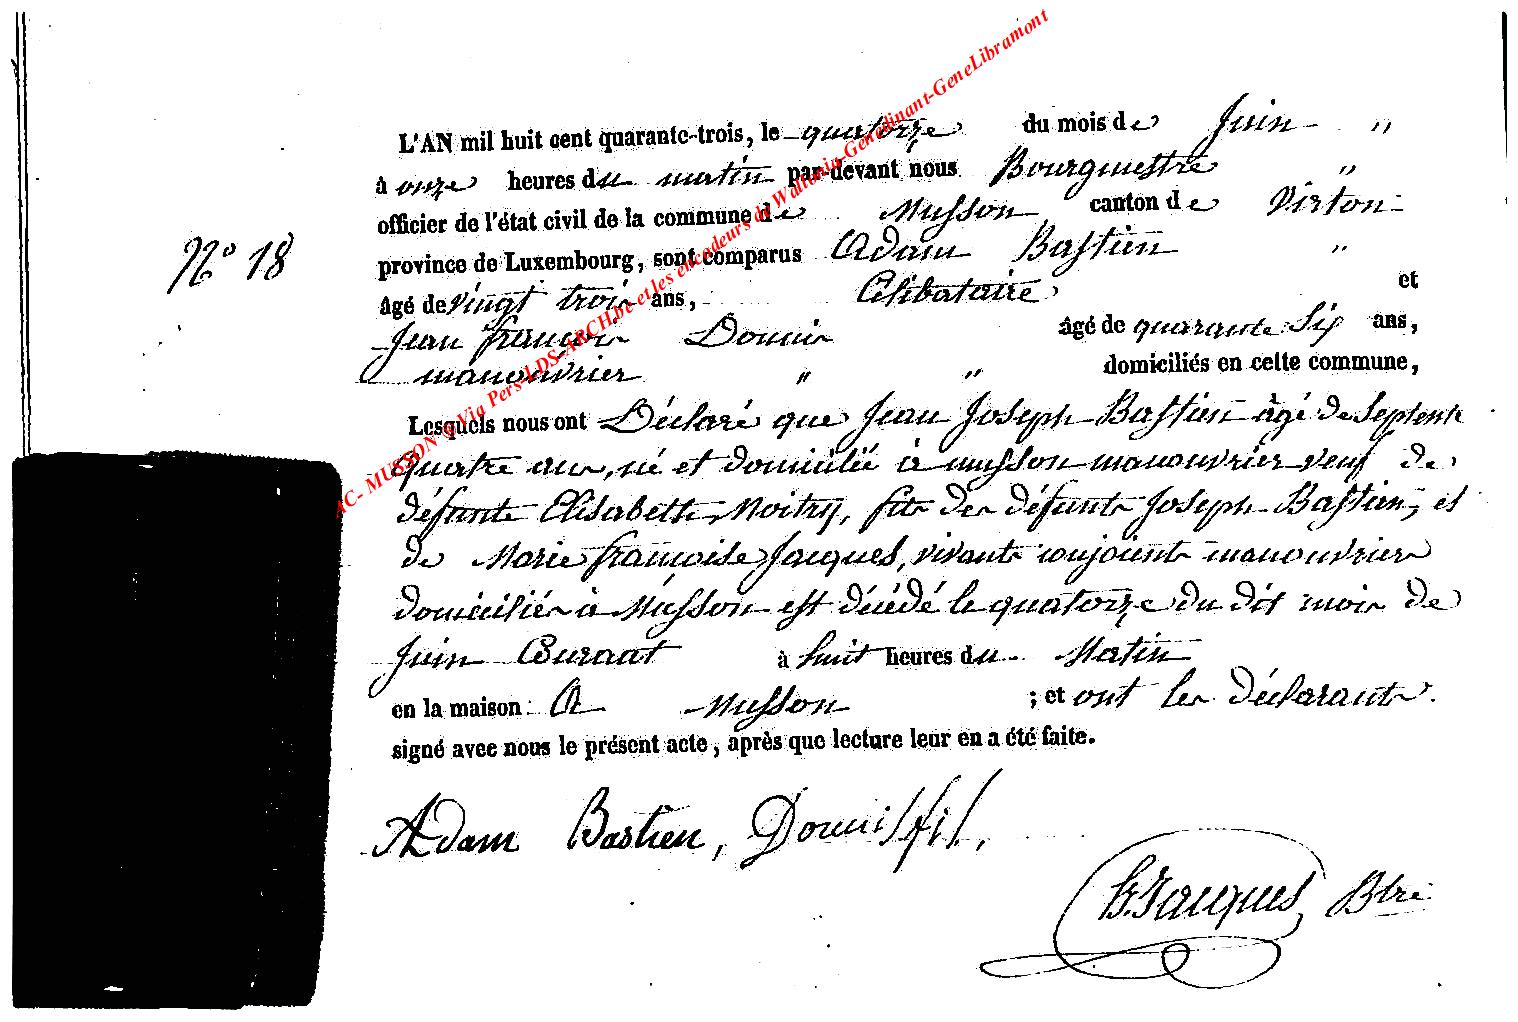 L'AN mil huit cent quarante-trois, le quatorze du mois de Juin "
à onze heures du matin par-devant nous Bourgmestre "
officier de l'état civil de la commune de Musson canton de Virton
N° 18
province de Luxembourg, sont comparus Adam Bastien "
âgé de vingt trois ans, Célibataire et
Jean françois Domis âgé de quarante Six ans,
manouvrier " " domiciliés en cette commune,
Lesquels nous ont Déclaré que Jean Joseph Bastien âgé de Septente
quatre ans, né et domicilié à musson manouvrier veuf de
défunte Elisabeth Noitry, fils des défunts Joseph Bastien, et
de Marie françoise Jacques, vivants conjoints manouvriers
domiciliés à Musson est décédé le quatorze du dit mois de
Juin Courant à huit heures du Matin
en la maison A Musson ; et ont les déclarants
signé avec nous le présent acte, après que lecture leur en a été faite.
Adam Bastien, Domis fils,
Jacques Btre
AC- MUSSON - Via Pers-LDS-ARCH.be et les encodeurs de Wallonia-Genedinant-GeneLibramont